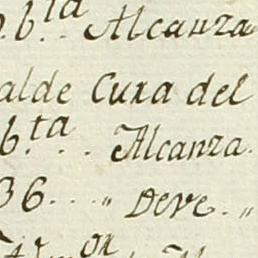 b.ta .. Alcanza
alde Cura del
b.ta .. Alcanza.
36... " Deve. . "